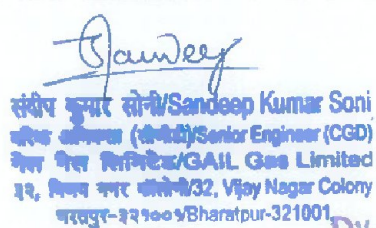 Sandeep
संदीप कुमार सोनी/Sandeep Kumar Soni
(सीजीडी)/Senior Engineer (CGD)
गैस लिमिटेड/GAIL Gas Limited
३२, विजय नगर कॉलोनी/32, Vijay Nagar Colony
भरतपुर-३२१००१/Bharatpur-321001